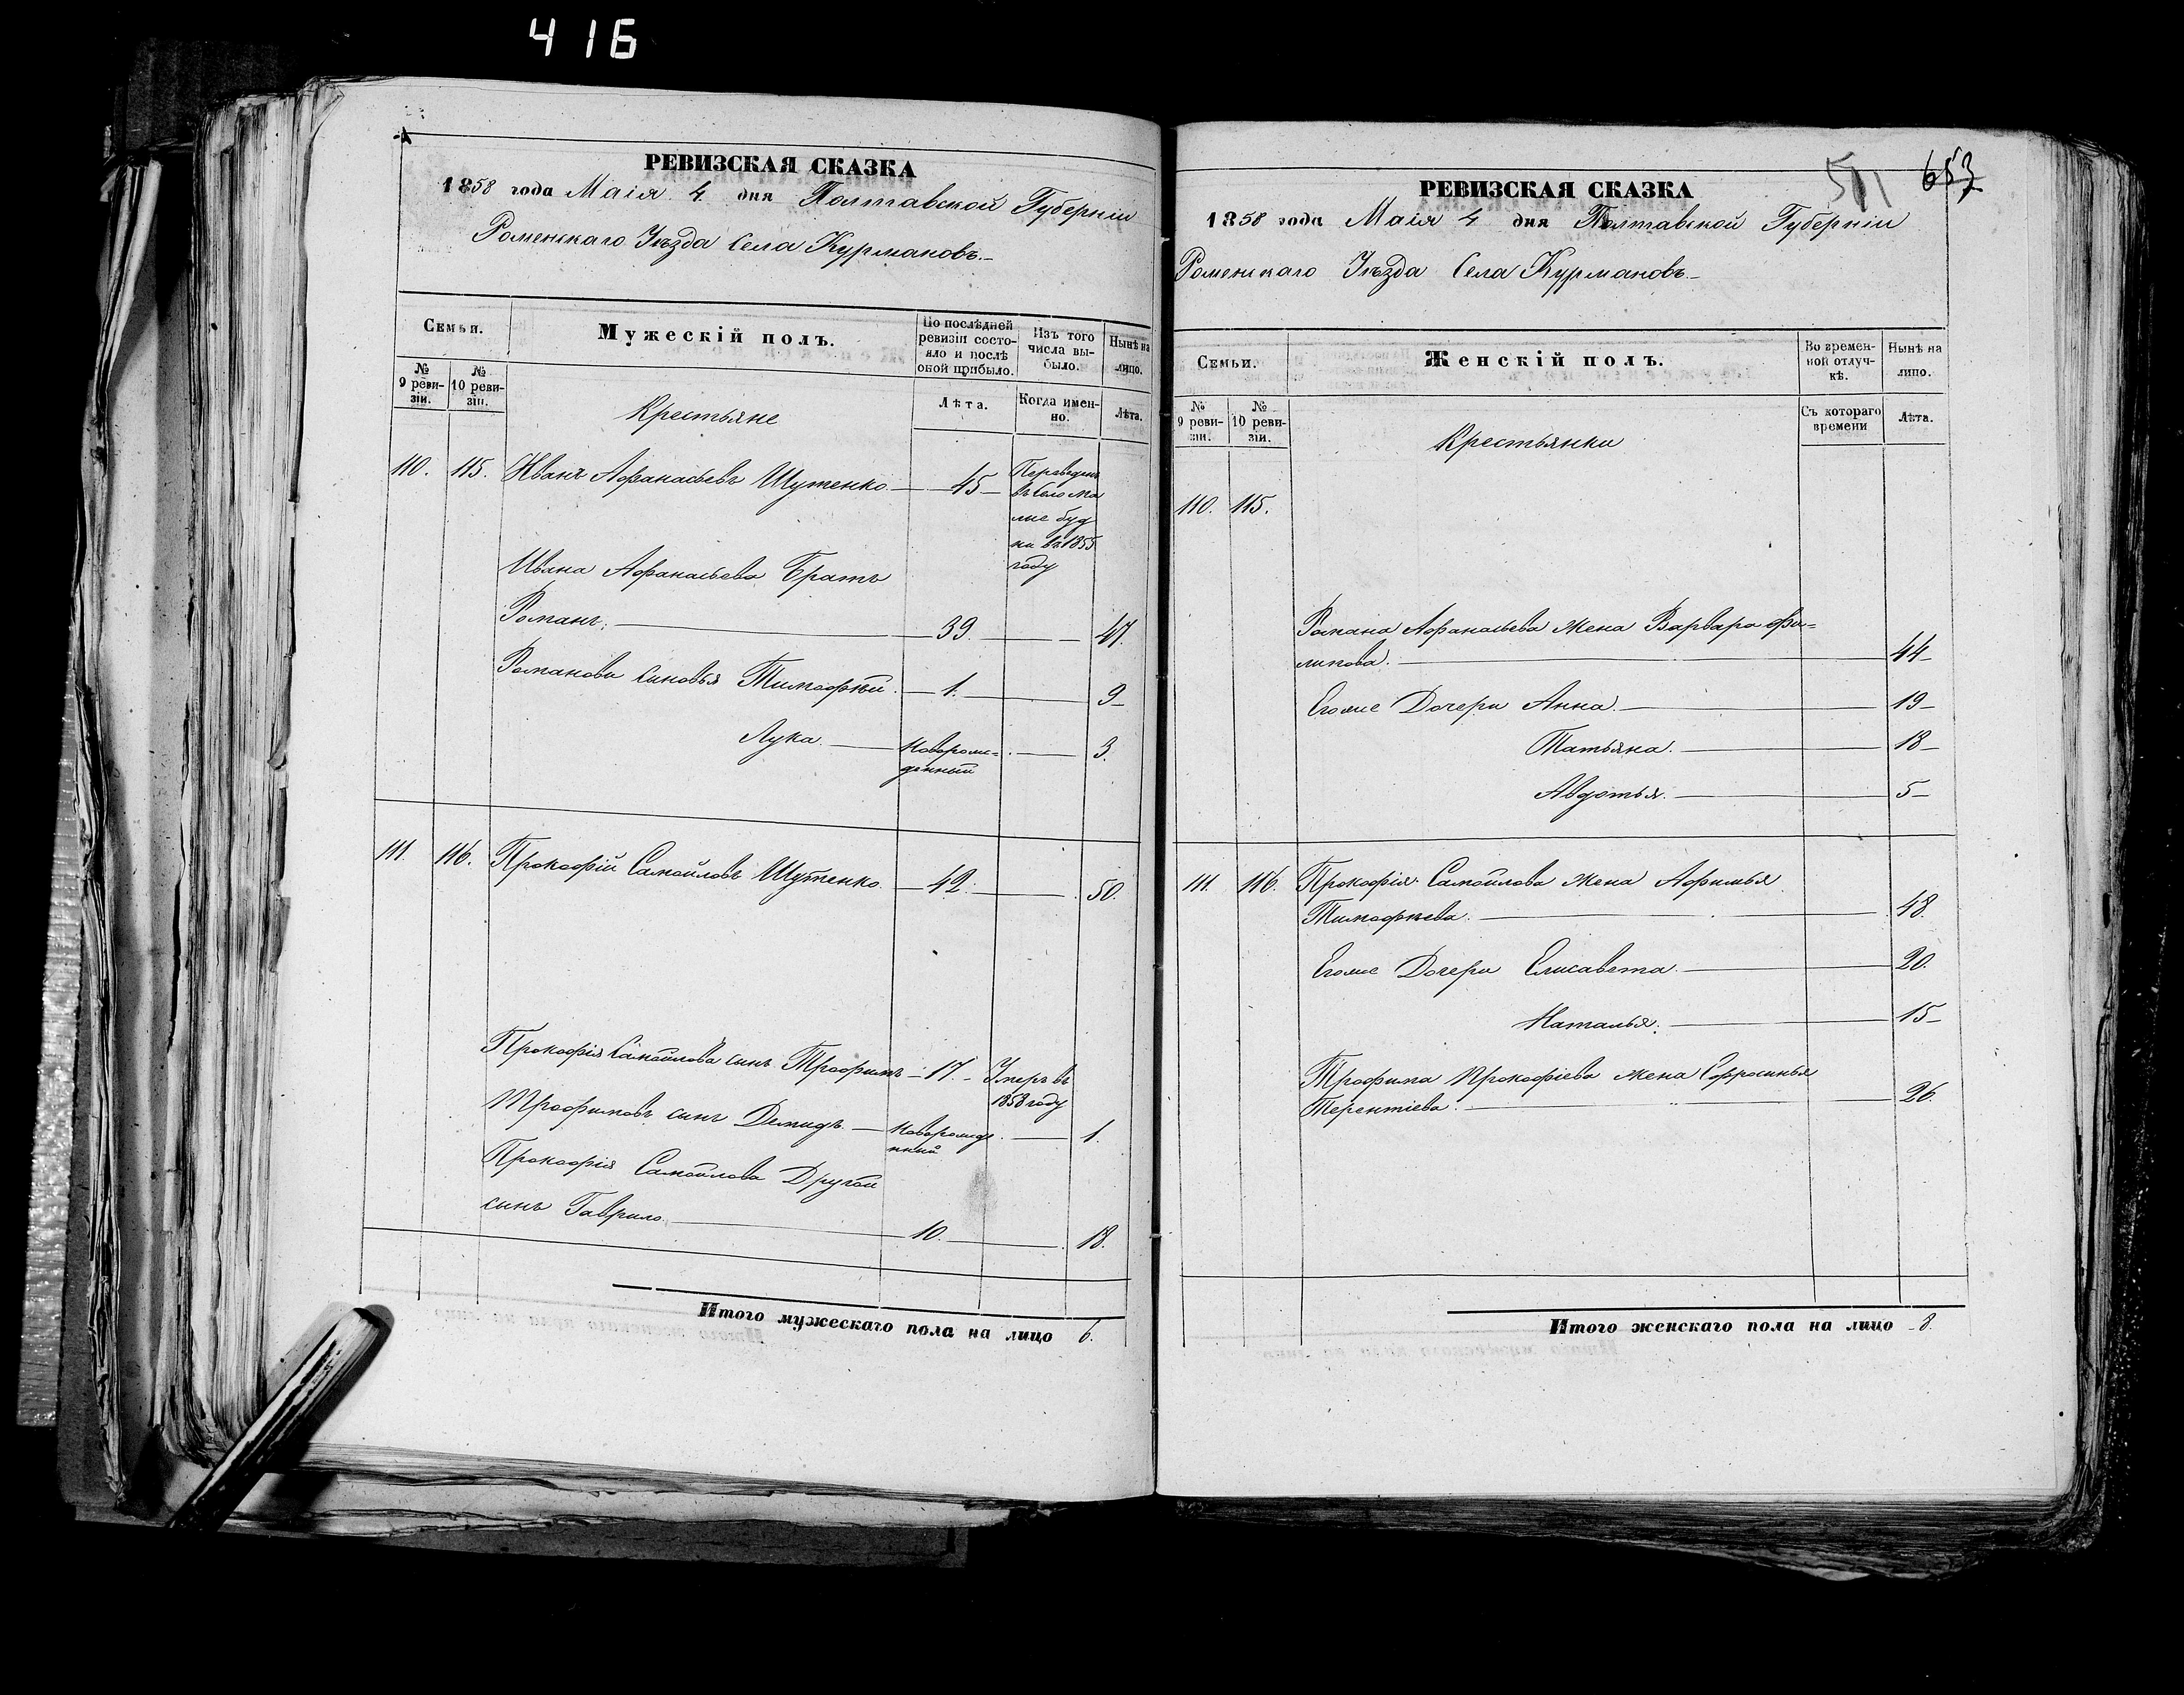 416
РЕВИЗСКАЯ СКАЗКА
1858 года Маія 4 дня Полтавской Губерніи
Роменскаго Уѣзда Села Курмановъ.
Семьи.
Мужескій полъ.
По послѣдней ревизіи состояло и послѣ оной прибыло.
Изъ того числа выбыло.
Нынѣ на лицо.
№ 9 ревизіи.
№ 10 ревизіи.
Крестьяне
Лѣта.
Когда именно.
Лѣта.
110. 115. Иванъ Афанасьевъ Шутенко 45
Переведенъ
въ Село Ма
лые буд
ки въ 1855
году
Ивана Афанасьева Братъ
Романъ. 39. 47.
Романови Синовья Тимофѣй. 1. 9
Лука. Новорож=
денный 3.
111. 116. Прокофій Самойловъ Шутенко. 42. 50.
Прокофія Самойлова синъ Трофимъ 17. Умеръ въ
1858 году
Трофимовъ синъ Демидъ. Новорожде
нный 1.
Прокофія Самойлова Другой
синъ Гаврило. 10. 18.
Итого мужескаго пола на лицо 6.
511 653
РЕВИЗСКАЯ СКАЗКА
1858 года Маія 4 дня Полтавской Губерніи
Роменскаго Уѣзда Села Курмановъ.
Семьи.
Женскій полъ.
Во временной отлучкѣ.
Нынѣ на лицо.
№ 9 ревизіи.
№ 10 ревизіи.
Крестьянки
Съ котораго времени
Лѣта.
110. 115.
Романа Афанасьева Жена Варвара Фи=
липова. 44
Егоже Дочери Анна. 19
Татьяна. 18
Авдотья. 5
111. 116. Прокофія Самойлова Жена Афимья
Тимофѣева. 48.
Егоже Дочери Елисавета. 20.
Наталья. 15
Трофима Прокофіева жена Ефросинья
Терентіева. 26.
Итого женскаго пола на лицо 8.